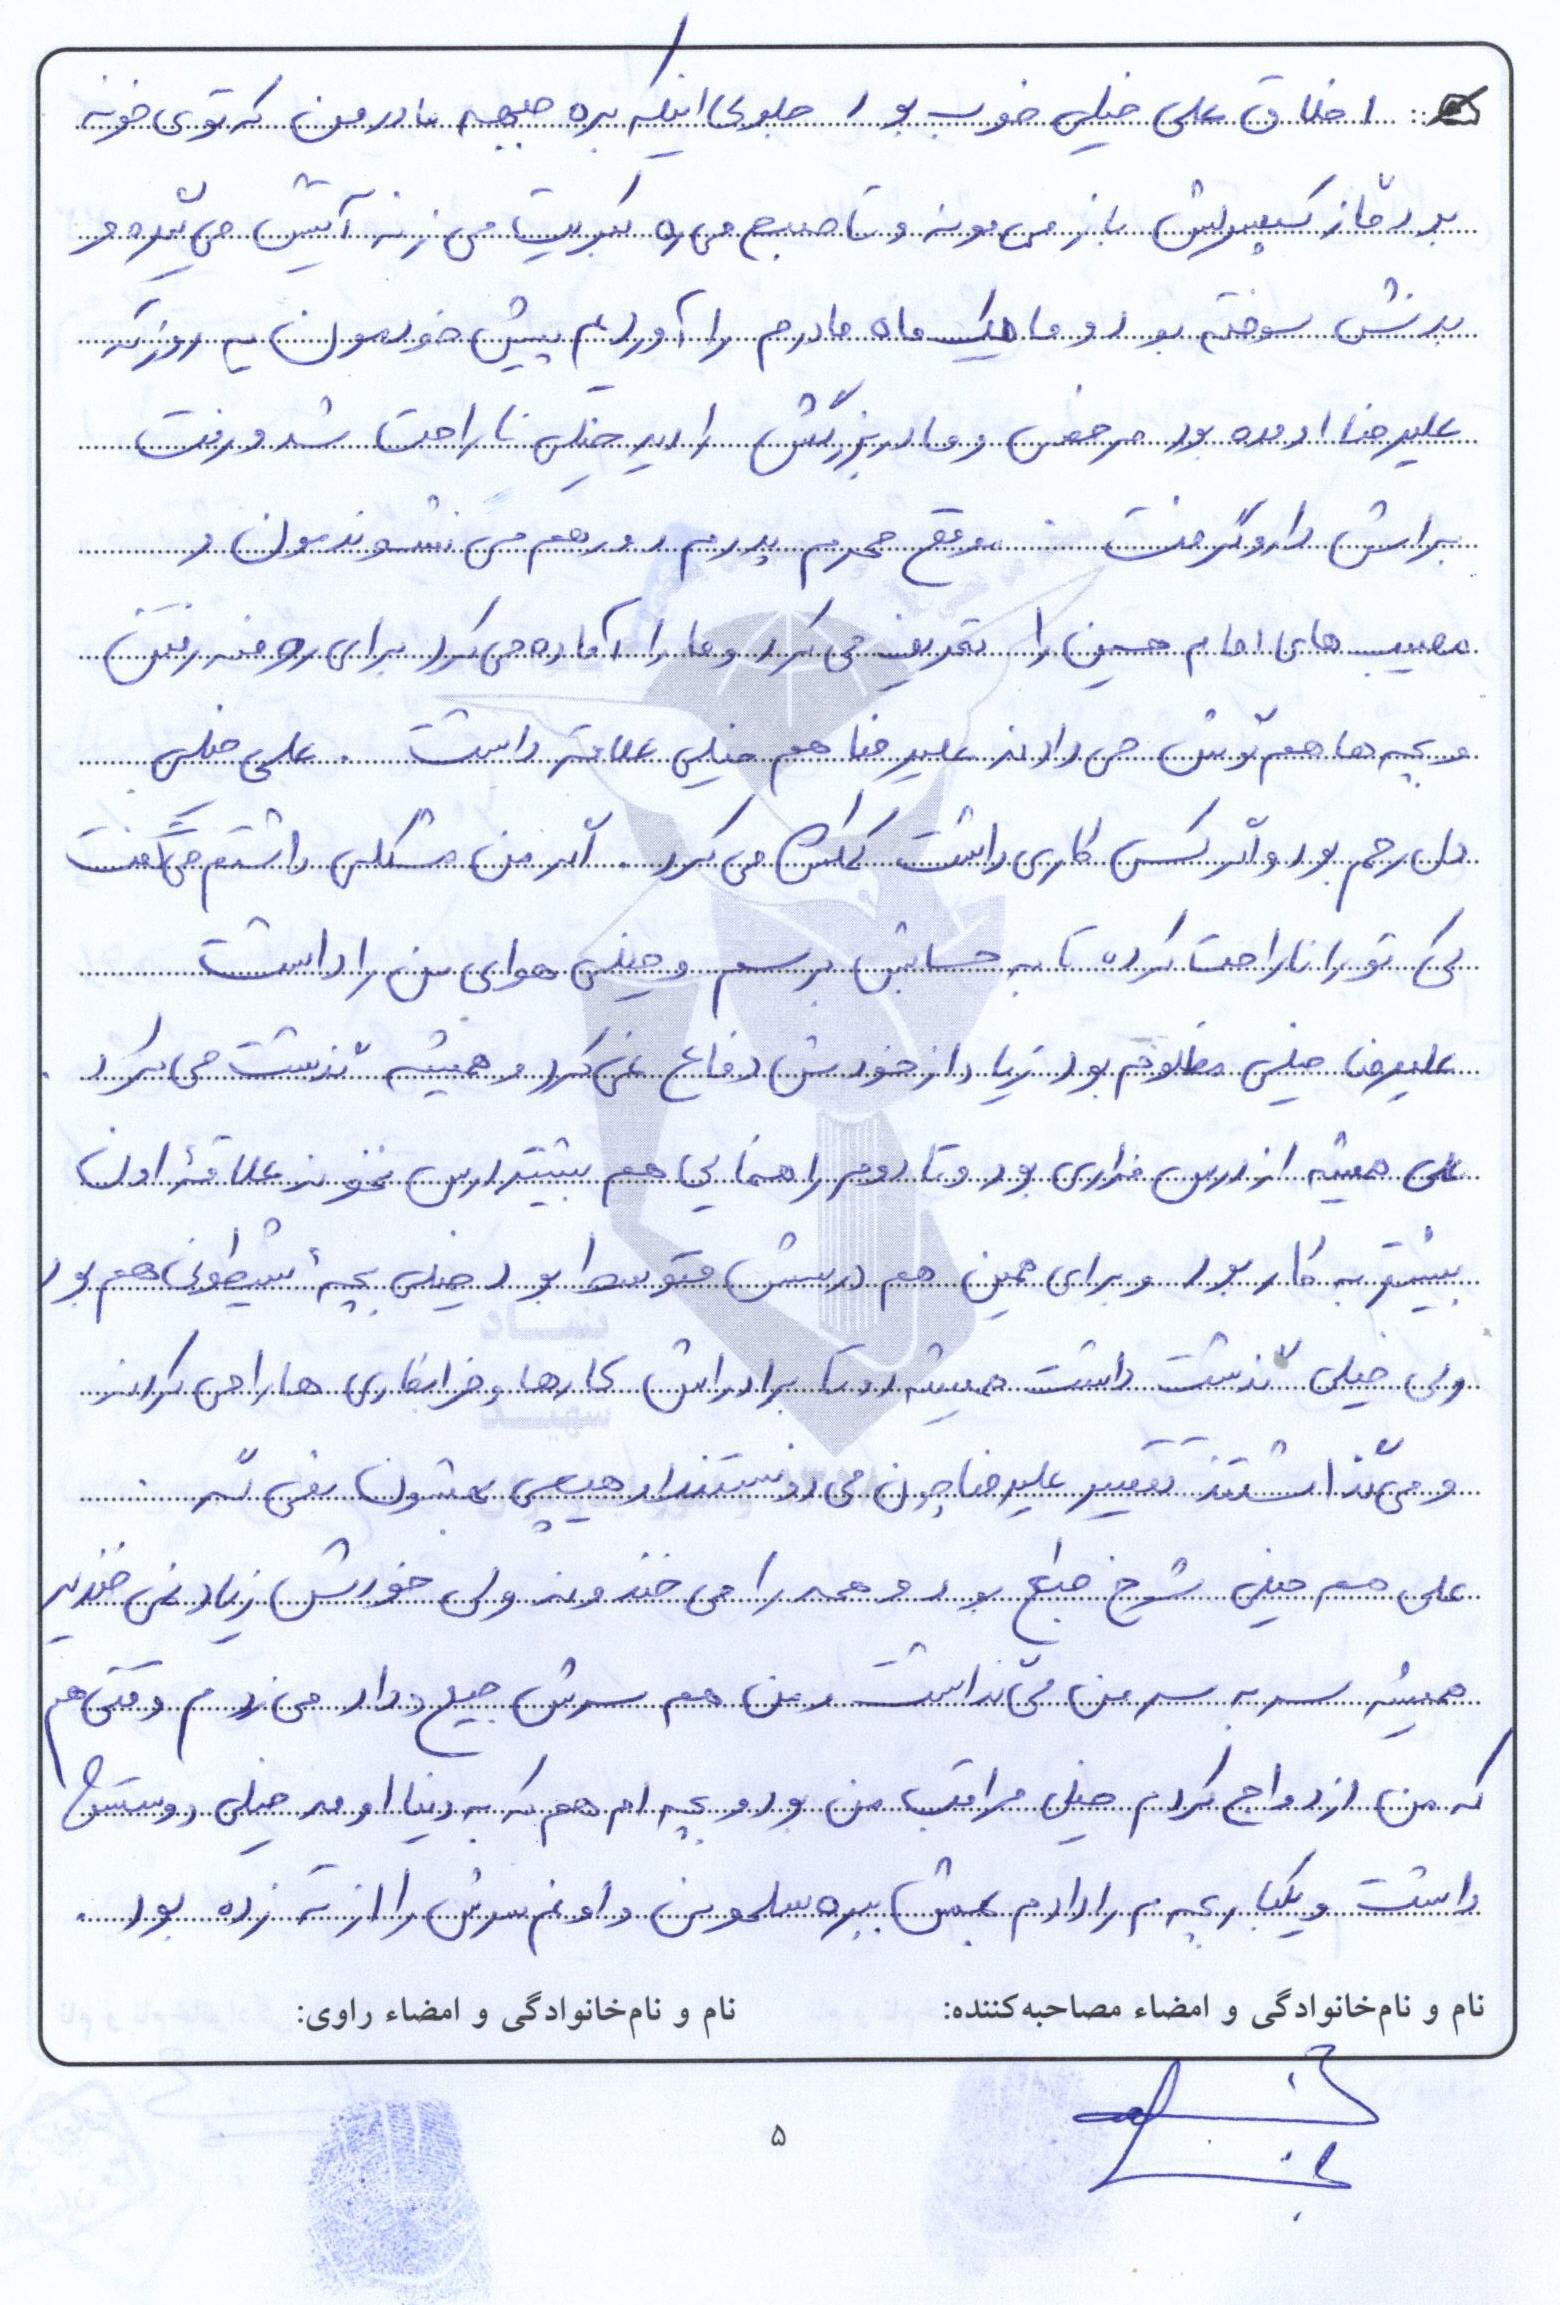 اخلاق علی خیلی خوب بود جلوی اینکه بره جبهه مادرمون که توی خونه
بود گاز کپسولش باز می مونه و تا صبح می ره کبریت می زنه آتیش می گیره و
بدنش سوخته بود و ما یک ماه مادرم را آوردیم پیش خودمون یه روز که
علیرضا اومده بود مرخصی و مادربزرگش را دید خیلی ناراحت شد و رفت
براش دارو گرفت موقع محرم پدرم دورهم می نشوندمون و
مصیبت های امام حسین را تعریف می کرد و ما را آماده می کرد برای روضه رفتن
و بچه ها هم گوش می دادند علیرضا هم خیلی علاقه داشت . علی خیلی
دل رحم بود و اگر کسی کاری داشت کمکش می کرد . اگر من مشکلی داشتم می گفت
کی تو را ناراحت کرده تا به حسابش برسم و خیلی هوای من را داشت
علیرضا خیلی مظلوم بود زیاد از خودش دفاع نمی کرد و همیشه گذشت می کرد .
علی همیشه از درس فراری بود و تا دوم راهنمایی هم بیشتر درس نخوند علاقهٔ اون
بیشتر به کار بود و برای همین هم درسش متوسط بود خیلی بچهٔ شیطونی هم بود
ولی خیلی گذشت داشت همیشه دو تا برادراش کارها و خرابکاری ها را می کردند
و می گذاشتند تقصیر علیرضا چون می دونستند او هیچی بهشون نمی گه .
علی هم خیلی شوخ طبع بود و همه را می خندوند ولی خودش زیاد نمی خندید
همیشه سر به سر من می گذاشت و من هم سرش جیغ و داد می زدم وقتی هم
که من ازدواج کردم خیلی مراقب من بود و بچه ام هم که به دنیا اومد خیلی دوستش
داشت و یکبار بچه م را دادم بهش ببره سلمونی و اونم سرش را از ته زده بود .
نام و نام‌خانوادگی و امضاء مصاحبه‌کننده: نام و نام‌خانوادگی و امضاء راوی:
۵